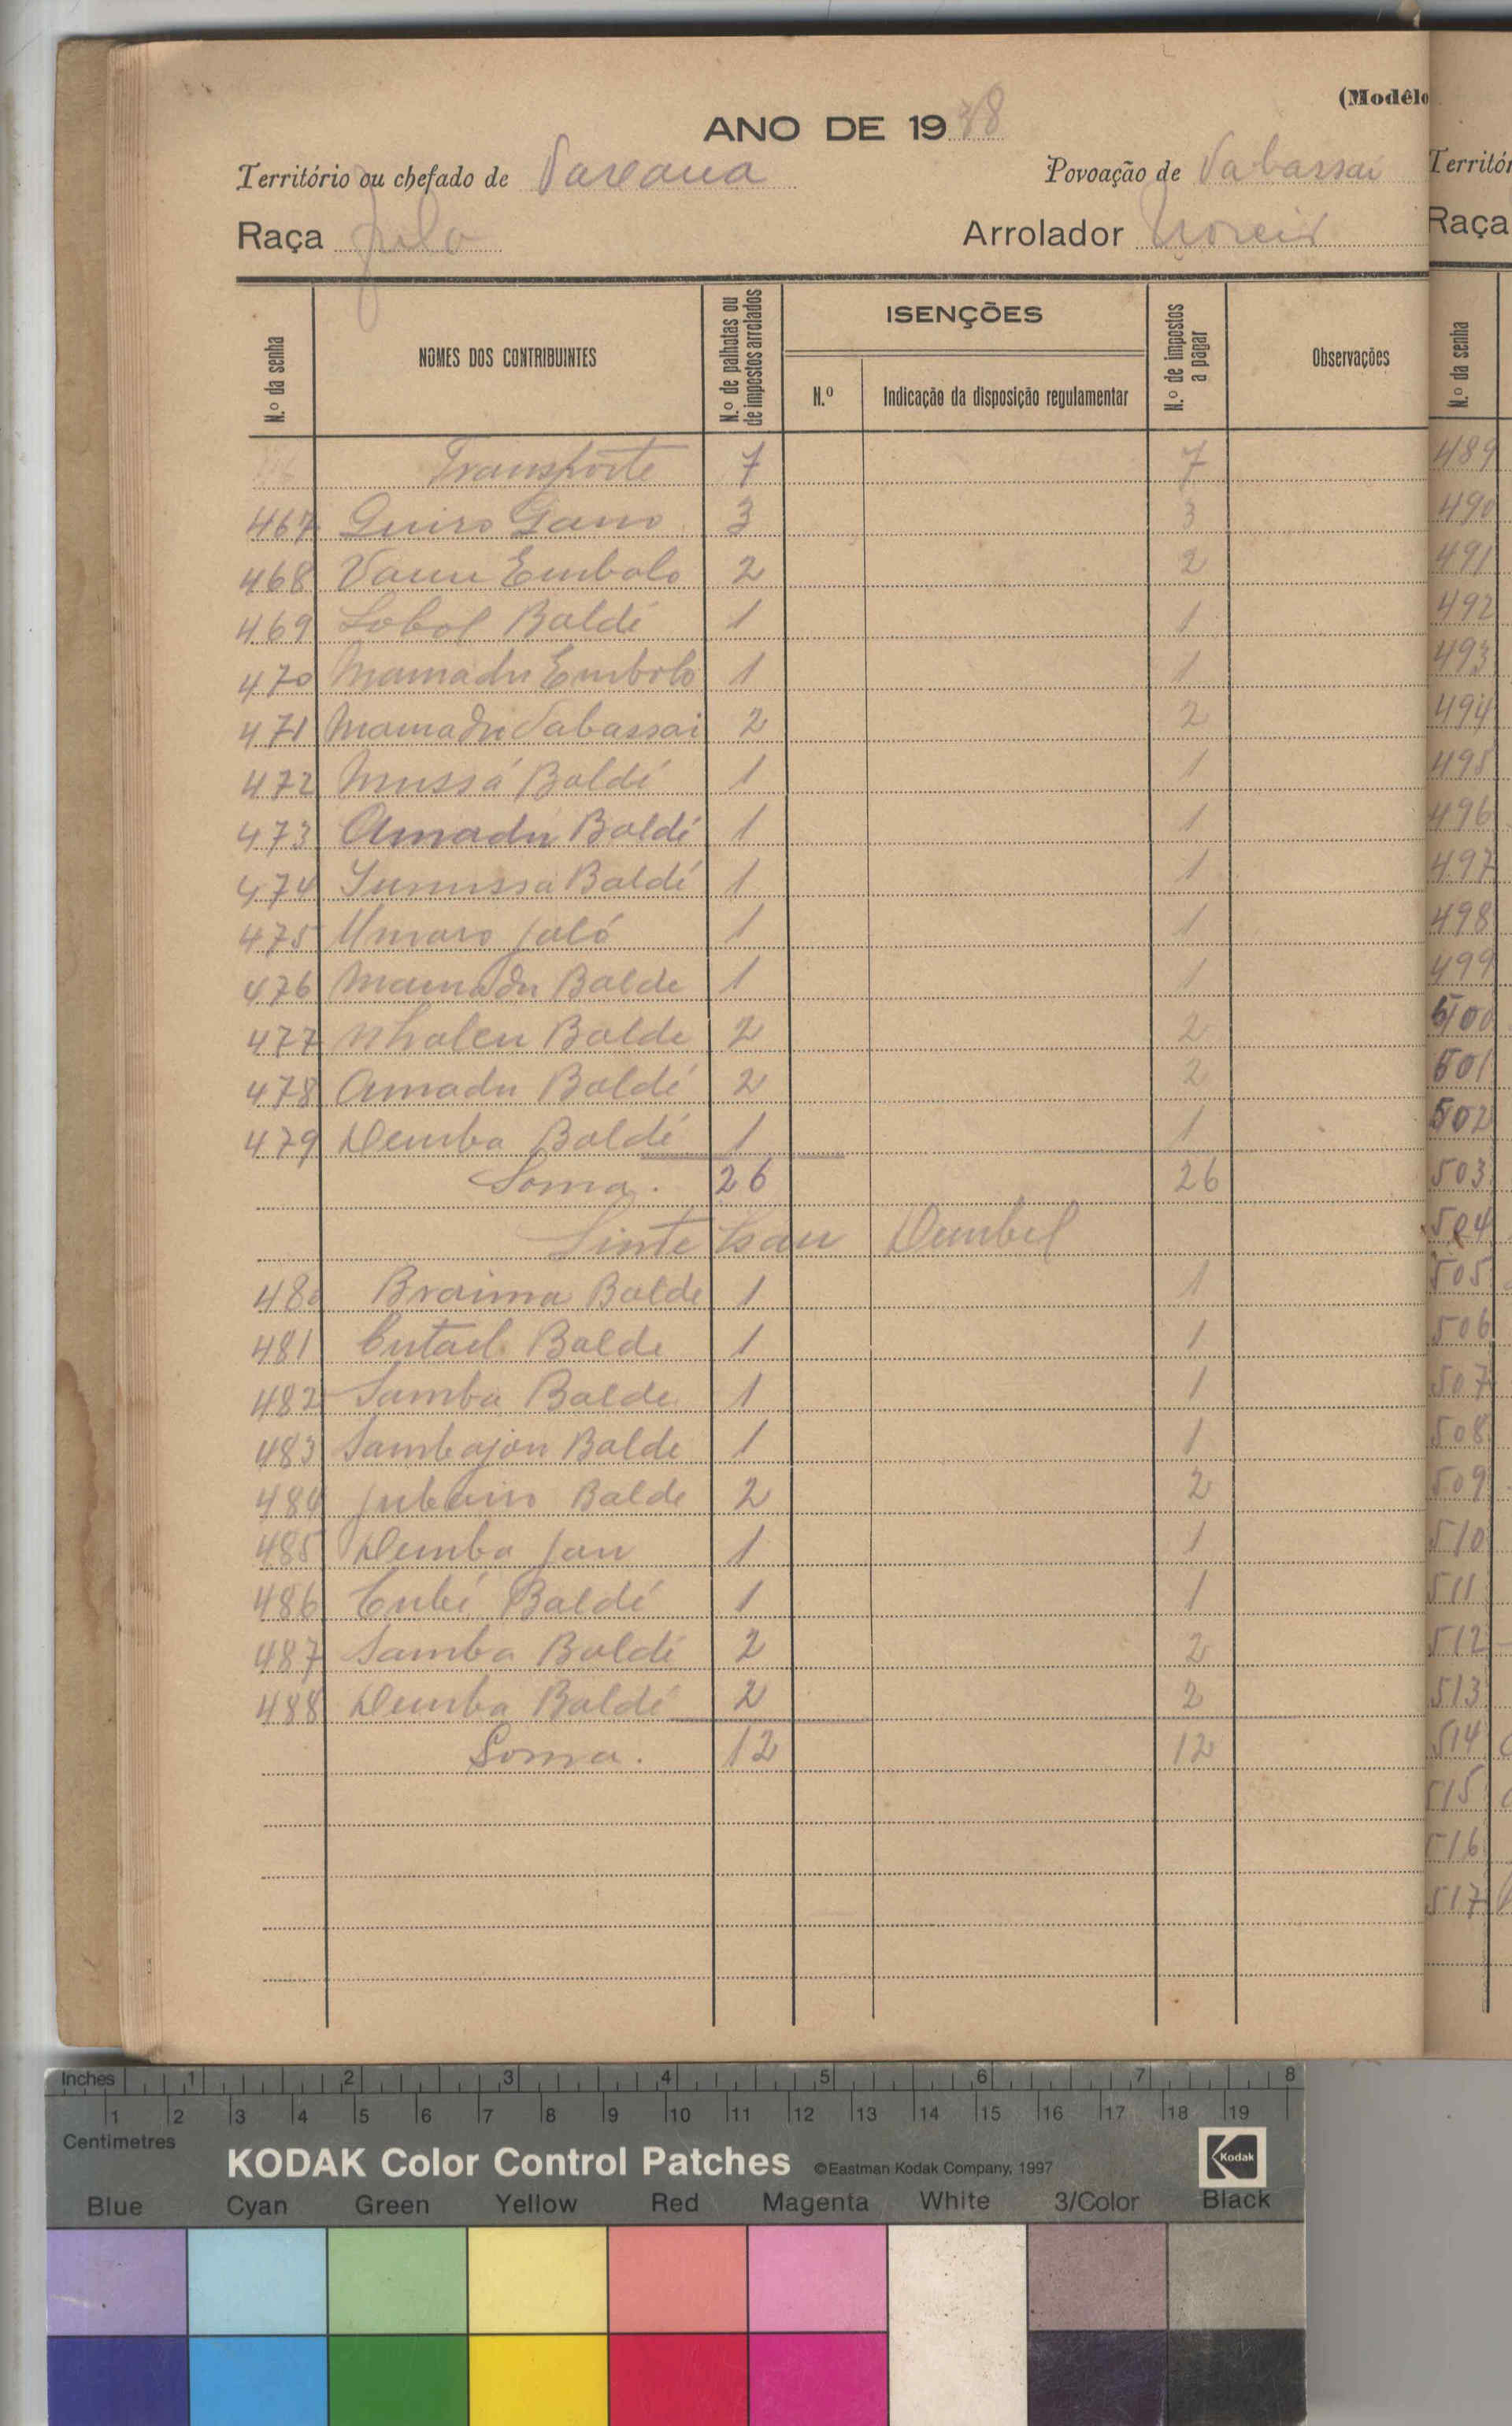 (Modêlo
ANO DE 1938
Território ou chefado de
Povoação de Sabassai
Raça Fula
Arrolador Moreir
N.º da senha NOMES DOS CONTRIBUINTES N.º de palhotas ou de impostos arrolados ISENÇÕES N.º de impostos a pagar Observações
N.º Indicação da disposição regulamentar
Transporte 7 7
467 Quiro Gano 3 3
468 Embalo 2 2
469 Sobel Baldé 1 1
470 Mamadu Embalo 1 1
471 Mamadu Sabassai 2 2
472 Mussá Baldé 1 1
473 Amadu Baldé 1 1
474 Iunussa Baldé 1 1
475 Umaro Jaló 1 1
476 Mamadu Balde 1 1
477 Balde 2 2
478 Amadu Baldé 2 2
479 Demba Baldé 1 1
Soma. 26 26
Sinte Dembel
480 Braima Balde 1 1
481 Balde 1 1
482 Samba Balde 1 1
483 Sambajon Balde 1 1
484 Jubairo Balde 2 2
485 Demba Jau 1 1
486 Cubé Baldé 1 1
487 Samba Baldé 2 2
488 Demba Baldé 2 2
Soma. 12 12
Territór
Raça
N.º da senha
489
490
491
492
493
494
495
496
497
498
499
500
501
502
503
504
505
506
507
508
509
510
511
512
513
514
515
516
517
Inches 1 2 3 4 5 6 7 8
1 2 3 4 5 6 7 8 9 10 11 12 13 14 15 16 17 18 19
Centimetres
KODAK Color Control Patches ©Eastman Kodak Company, 1997 Kodak
Blue Cyan Green Yellow Red Magenta White 3/Color Black